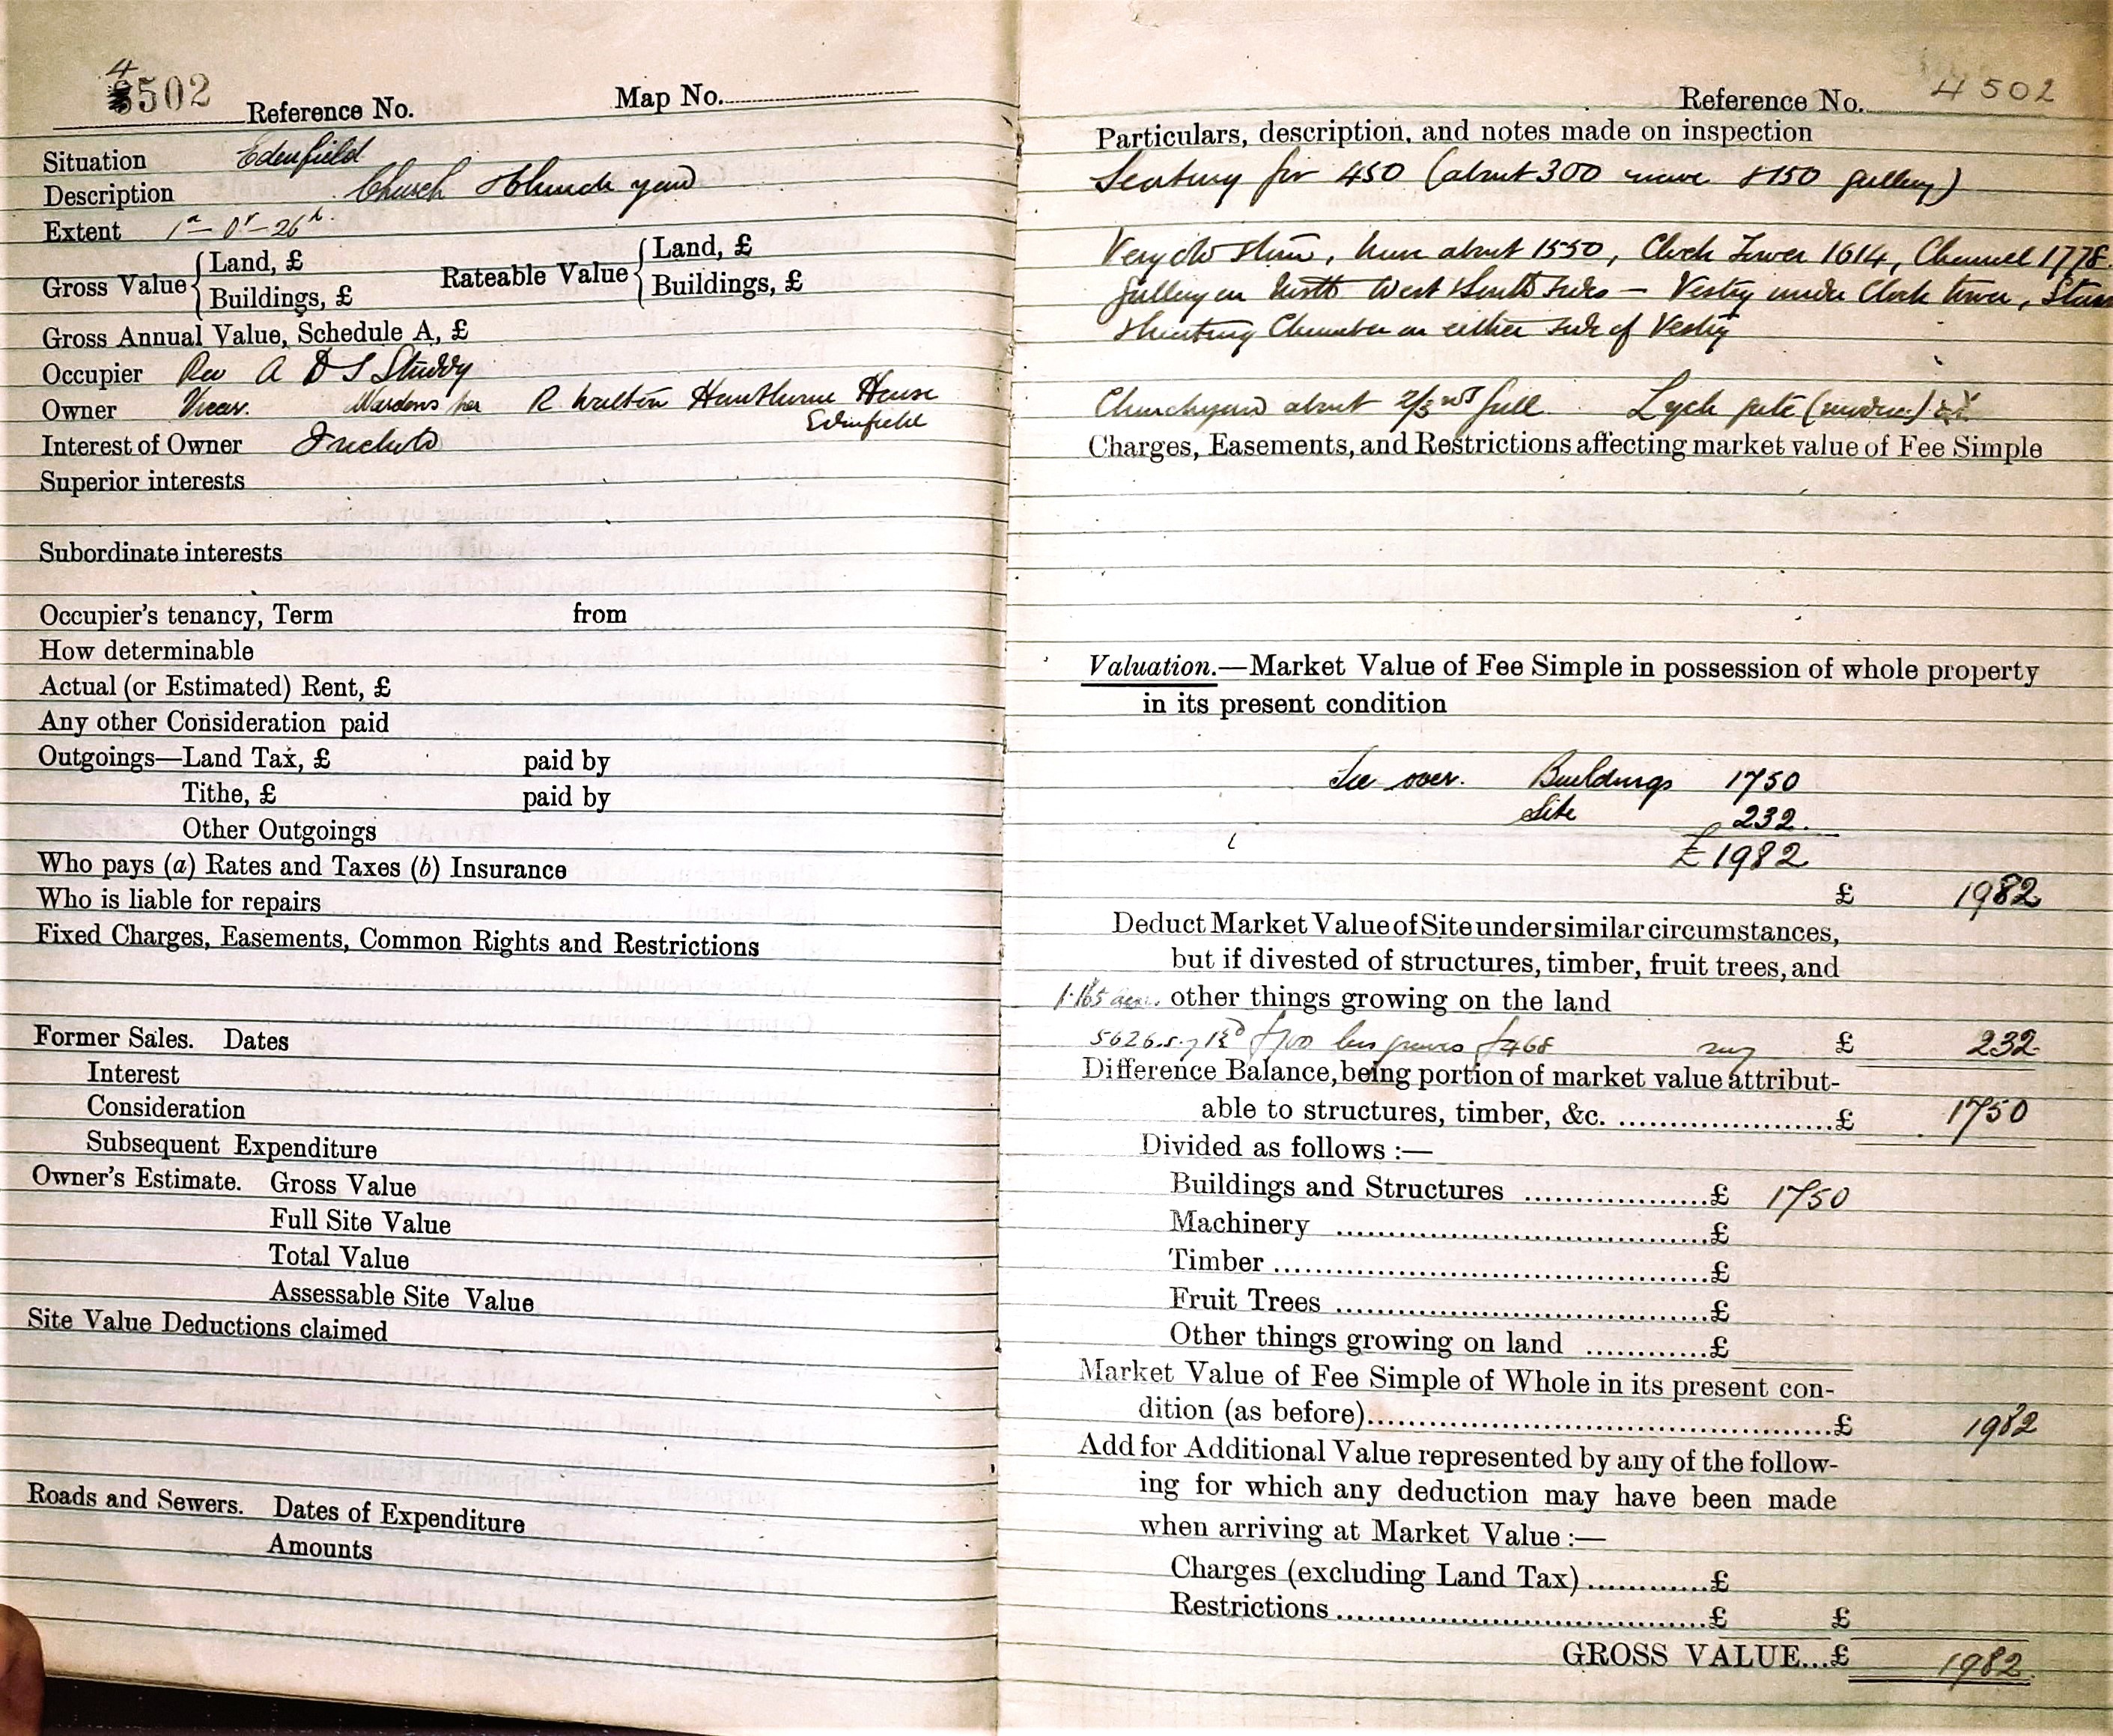 4502 Reference No. Map No.
Situation Edenfield
Description Church & Church yard
Extent 1a – 0r – 26
Gross Value { Land, £ Rateable Value { Land, £
Buildings, £ Buildings, £
Gross Annual Value, Schedule A, £
Occupier Rev A D S Studdy
Owner Vicar. Wardens per R. Walton Hawthorne House
Edenfield
Interest of Owner Freehold
Superior interests
Subordinate interests
Occupier's tenancy, Term from
How determinable
Actual (or Estimated) Rent, £
Any other Consideration paid
Outgoings—Land Tax, £ paid by
Tithe, £ paid by
Other Outgoings
Who pays (a) Rates and Taxes (b) Insurance
Who is liable for repairs
Fixed Charges, Easements, Common Rights and Restrictions
Former Sales. Dates
Interest
Consideration
Subsequent Expenditure
Owner's Estimate. Gross Value
Full Site Value
Total Value
Assessable Site Value
Site Value Deductions claimed
Roads and Sewers. Dates of Expenditure
Amounts
Reference No. 4502
Particulars, description, and notes made on inspection
Seating for 450 (about 300 nave & 150 gallery)
Very old stone, nave about 1550, Clock Tower 1614, Chancel 1778.
Gallery on North West & South sides – Vestry under Clock tower,
& heating Chamber on either side of Vestry
Churchyard about 2/3rds full Lych gate (modern)
Charges, Easements, and Restrictions affecting market value of Fee Simple
Valuation.—Market Value of Fee Simple in possession of whole property
in its present condition
See over. Buildings 1750
Site 232.
£1982
£ 1982
Deduct Market Value of Site under similar circumstances,
but if divested of structures, timber, fruit trees, and
1.165 acres. other things growing on the land
5626 s.y £700 less graves £468 say £ 232
Difference Balance, being portion of market value attribut-
able to structures, timber, &c. ..................... £ 1750
Divided as follows :—
Buildings and Structures ................. £ 1750
Machinery .................................... £
Timber ........................................ £
Fruit Trees ................................... £
Other things growing on land ............ £
Market Value of Fee Simple of Whole in its present con-
dition (as before)............................................ £ 1982
Add for Additional Value represented by any of the follow-
ing for which any deduction may have been made
when arriving at Market Value :—
Charges (excluding Land Tax) ............ £
Restrictions .................................... £ £
GROSS VALUE... £ 1982